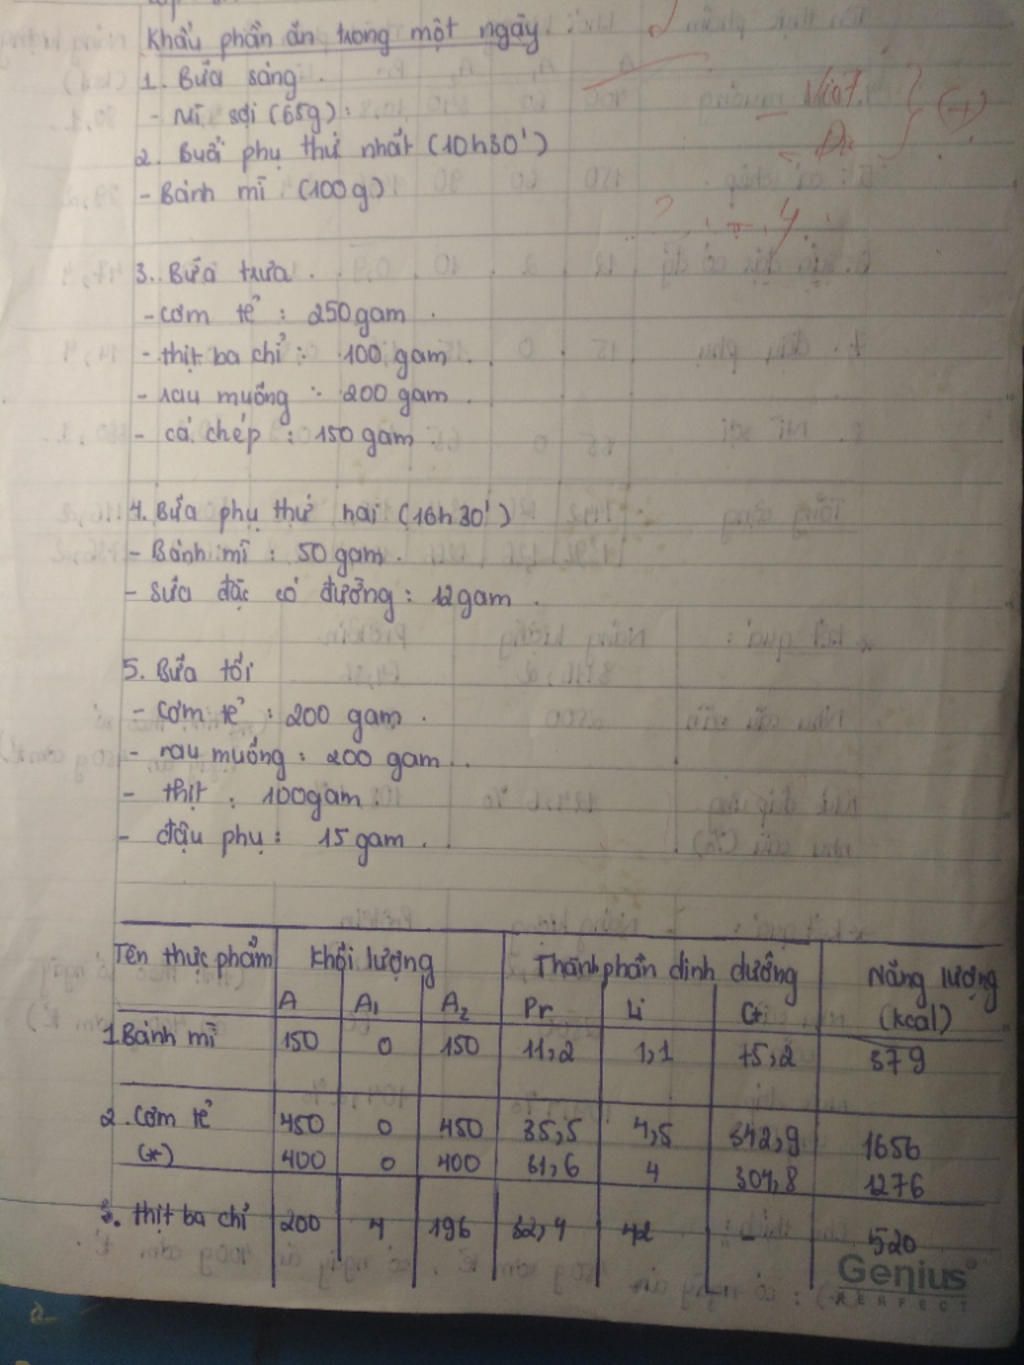 Khẩu phần ăn trong một ngày
1. Bữa sáng.
- Mì sợi (65g):
2. Buổi phụ thứ nhất (10h30')
- Bánh mì (100g)
3. Bữa trưa.
- cơm tẻ : 250gam.
- thịt ba chỉ : 100 gam.
- rau muống : 200 gam.
- cá chép : 150 gam.
4. Bữa phụ thứ hai (16h30')
- Bánh mì : 50gam.
- sữa đặc có đường : 12gam.
5. Bữa tối
- Cơm tẻ : 200 gam.
- rau muống : 200 gam.
- thịt : 100gam.
- đậu phụ : 15 gam.
Tên thực phẩm Khối lượng Thành phần dinh dưỡng Năng lượng
A A1 A2 Pr Li G (kcal)
1. Bánh mì 150 0 150 11,2 1,1 75,2 379
2. Cơm tẻ 450 0 450 35,5 4,5 342,9 1656
(*) 400 0 400 31,6 4 304,8 1276
3. thịt ba chỉ 200 4 196 32,4 42 - 520
Genius
PERFECT